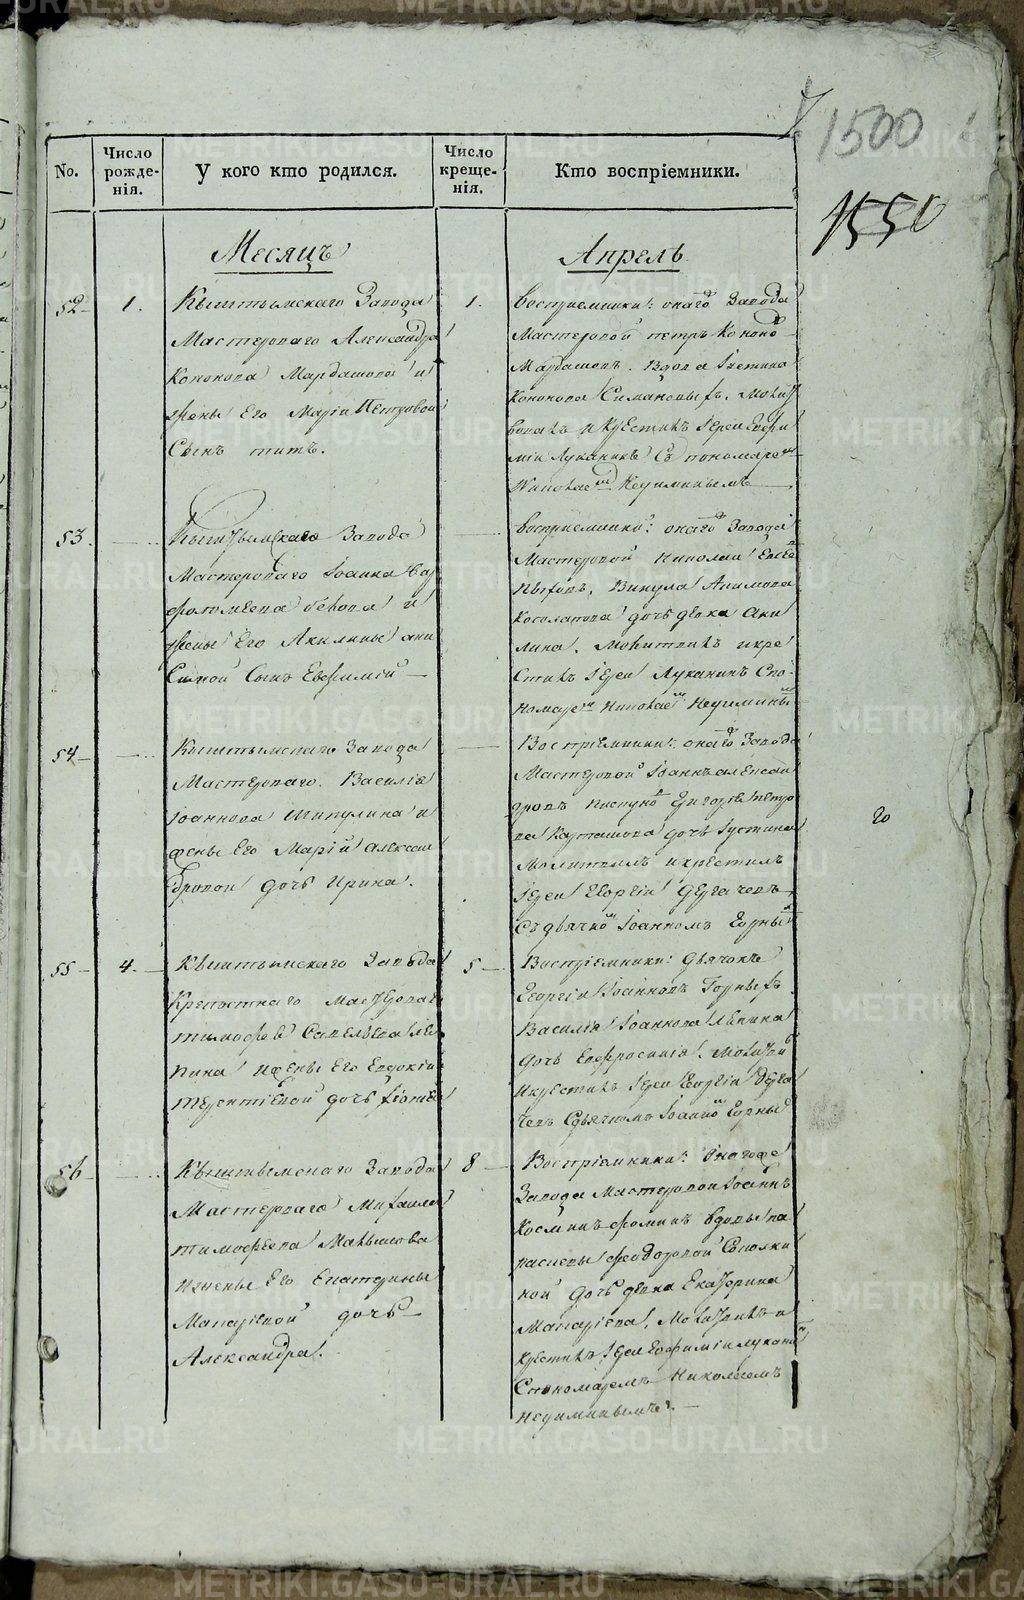 1500
1550
No.
Число рожде-нія.
У кого кто родился.
Число креще-нія.
Кто воспріемники.
Месяцъ
Апрель
52
1.
Кыштымскаго Завода
Мастероваго Александра
Кононова Мардашова и
жены Его Маріи Петровой
Сынъ титъ.
1.
Восприемники: онаго Завода
Мастеровой петръКононо
Мардашовъ. Вдова
Кононова
и крестилъ Іереи Евфи
мiи Луканинъ Съ пономаремъ
Николаемъ Неуиминымъ
53.
Кыштымскаго Завода
Мастероваго Іоанна Вар
фоломеева и
жены Его Акилины они
симой Сынъ Евфимiй
восприемники: онаго Завода
Мастеровой Николаи
Викула Акимова
Косолапова дочь девка Аки
лина. Молитвилъ и кре
стилъ Іереи Луканинъ Спо-
номаремъ Николаемъ Неуимины
54
Кыштымскаго Завода
Мастероваго Василія
Іоаннова Шипулина и
жены Его Маріи Алексан
дровой дочь Ирина.
Воспріемники: онаго Завода
Мастеровой Іоаннъ алексан
дровъ Григорія петро
ва Карташова дочь Іустина
Молитвилъ и крестилъ
Іереи Георгiи Дергачевъ
Съ дьячкомъ Іоанномъ Горных
55
4.
Кыштымскаго Завода
Крепостнаго Мастерова
тимофея Савельева Ле
пина и жены Его Евдокіи
терентiевой дочь
5
Воспріемники: Дьячокъ
Георгiи Іоанновъ Горныхъ
Василія Іоаннова Лепина
дочь Евфросинія. Молитвил
и крестилъ Іереи Георгiи Дерга
чевъ Сдьячкомъ Іоанно Горны
56
Кыштымскаго Завода
Мастероваго Михаила
тимофеева Малышова
и жены Его Екатерины
Макаріевой дочь
Александра.
8
Воспріемники: Онагоже
Завода Мастеровой Іоаннъ
Косминъ фоминъ вдовы па
расковы феодоровой Сополки
ной дочь девка Екатерина
Макаріева. Молитвилъ и
крестилъ Іереи Евфимiи Лукани
Спономаремъ Николаемъ
неуиминымъ.
METRIKI.GASO-URAL.RU